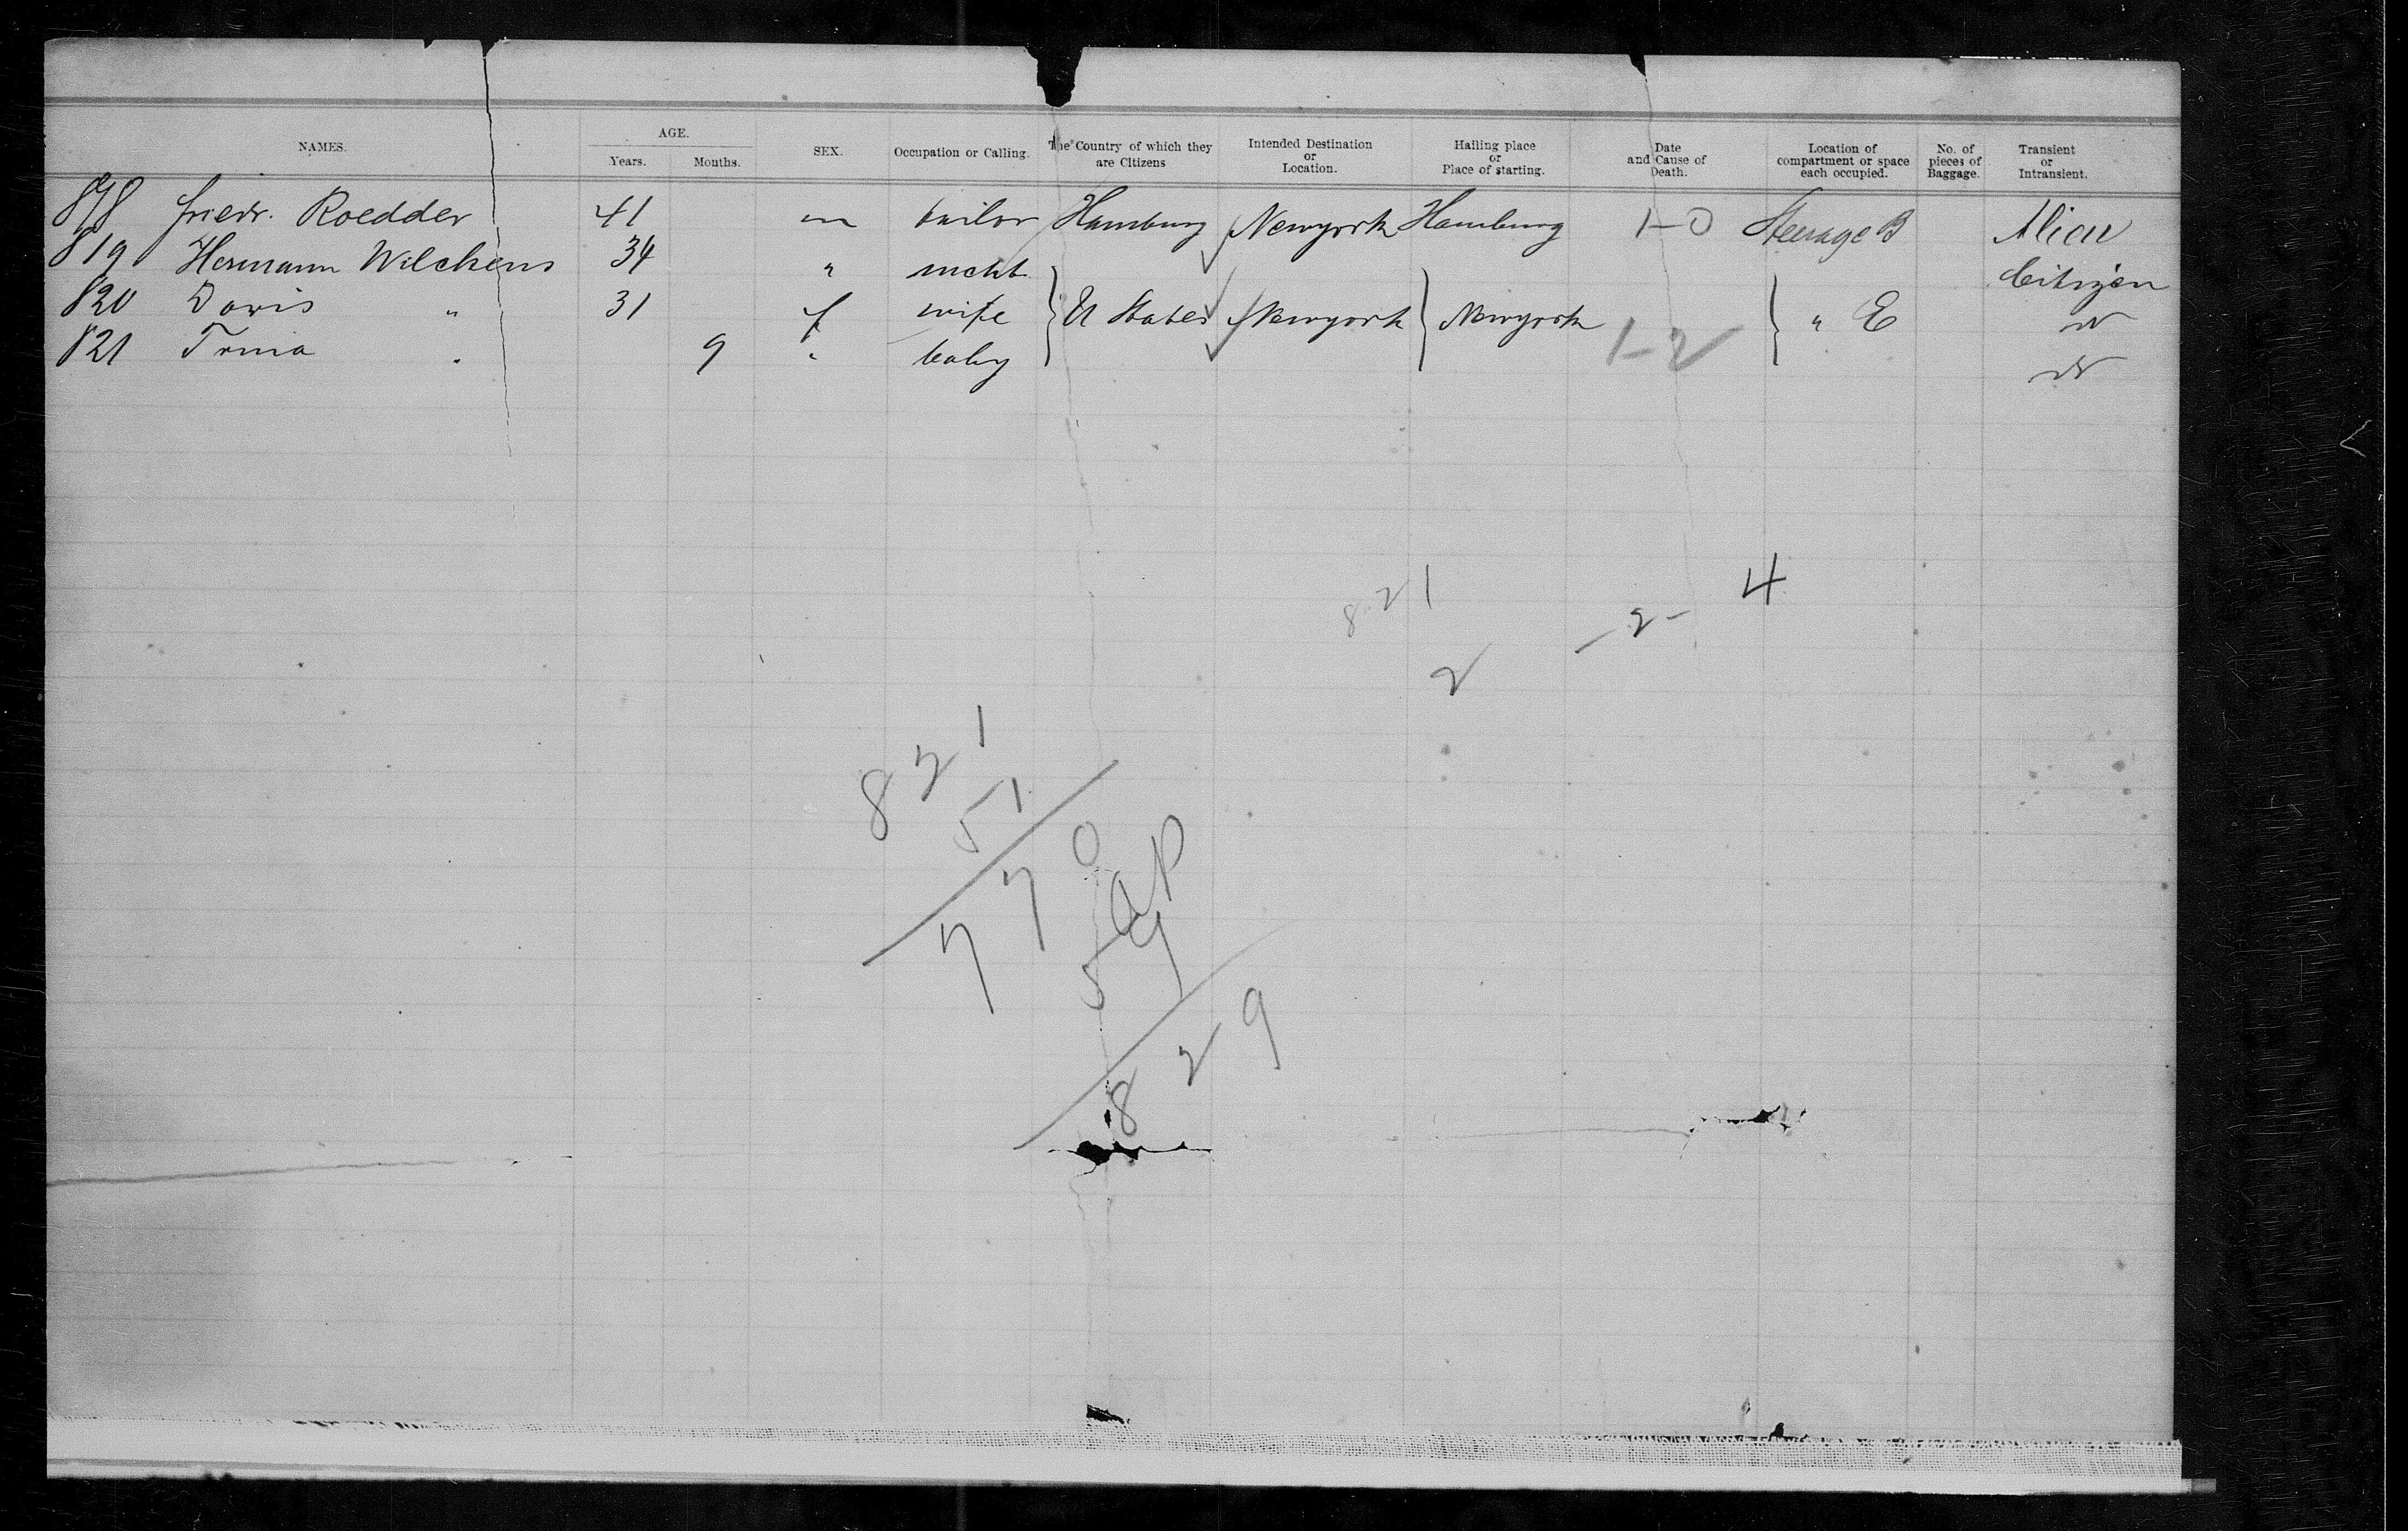 NAMES. AGE. Years. Months. SEX. Occupation or Calling. The Country of which they are Citizens Intended Destination or Location. Hailing place or Place of starting. Date and Cause of Death. Location of compartment or space each occupied. No. of pieces of Baggage. Transient or Intransient.
818 Friedr. Roedder 41 m tailor Hamburg Newyork Hamburg 1-0 Steerage B Alien
819 Hermann Wilckens 34 " mcht Citizen
820 Doris " 31 f wife U States Newyork Newyork 1-2 " E do
821 Trina " 9 " baby do
821 -2- 4
2
821
51
770
59
829